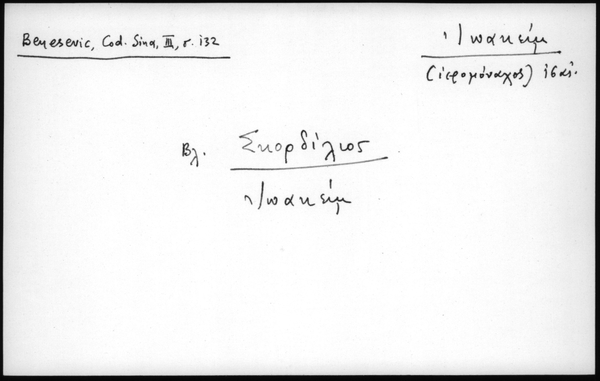 Benesevic, Cod. Sina, III, σ. 132
Ἰωακείμ
(ἱερομόναχος) ιϛ αἰ.
Βλ. Σκορδίλιος
Ἰωακείμ